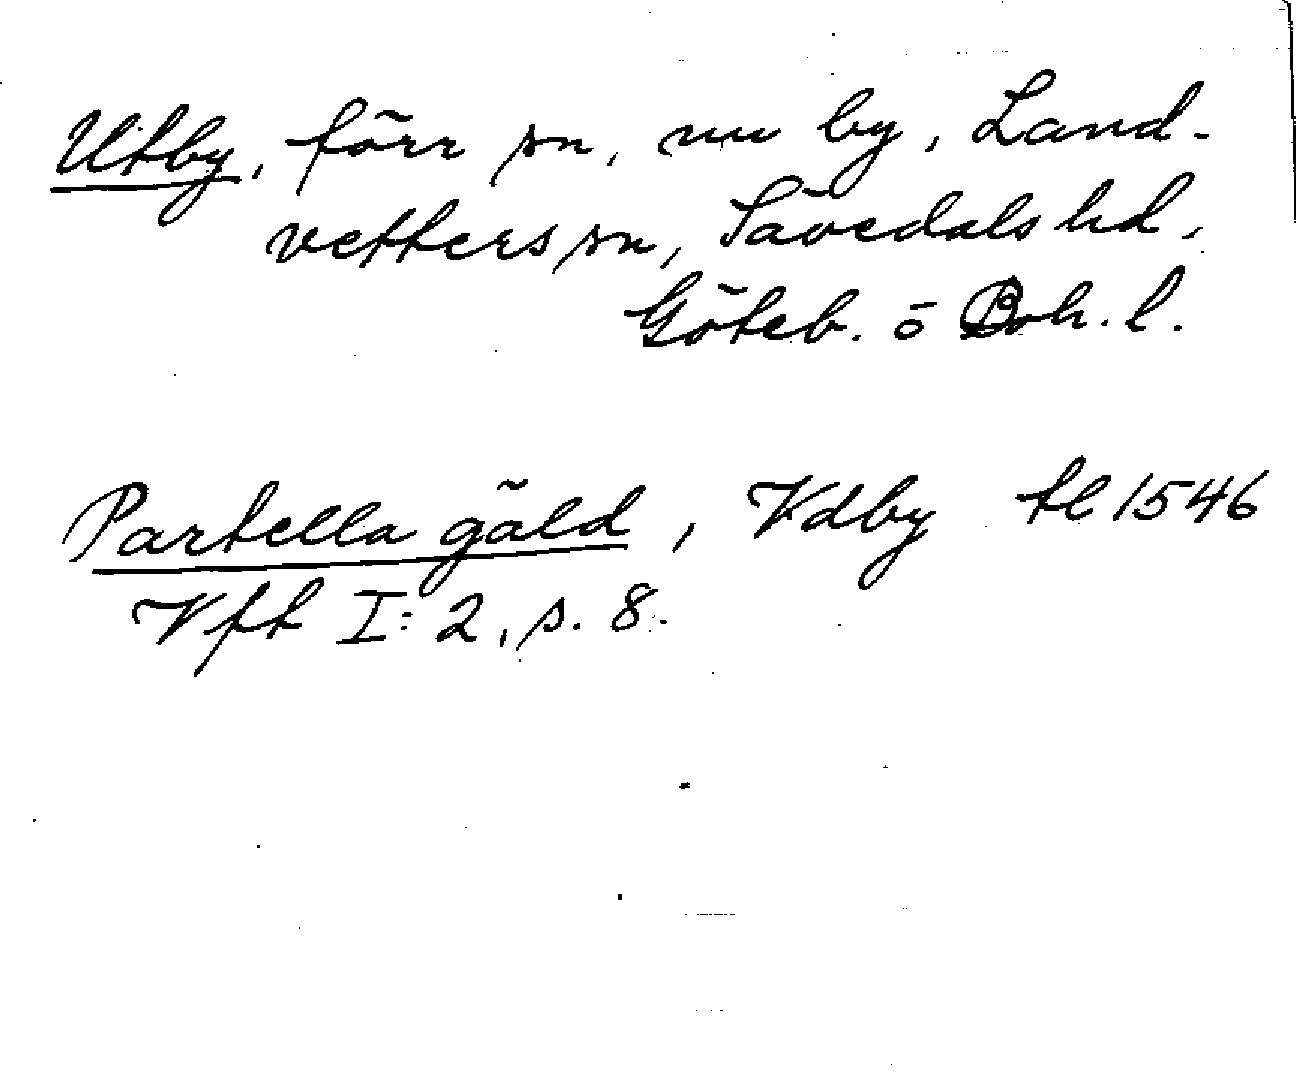 Utby, förr sn, nu by, Land-
vetters sn, Sävedals hd,
Göteb. o Boh. l.
Partella gäld, Vdby tl 1546
Vfh I:2, s. 8.